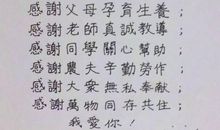 感謝父母孕育生養；
感謝老師真誠教導；
感謝同學關心幫助；
感謝農夫辛勤勞作；
感謝大眾無私奉獻；
感謝萬物同存共住；
我愛你！